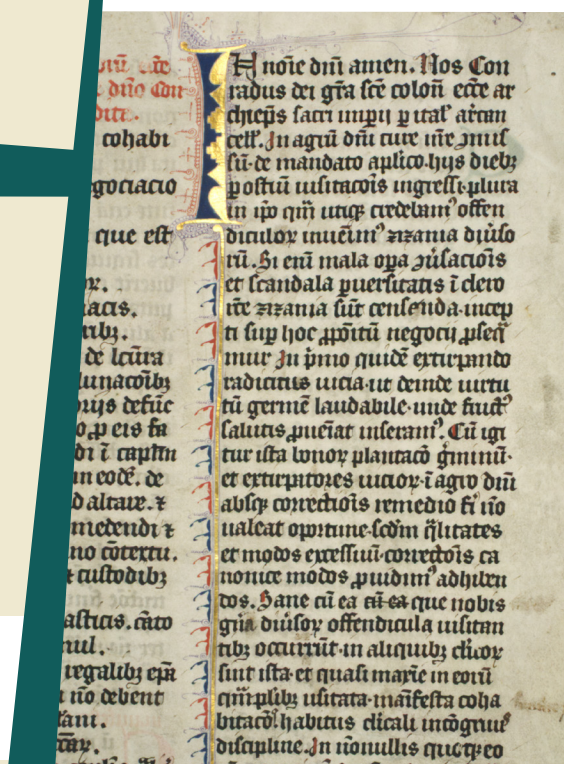 dño Con
dite.
cohabi
gociacio
que est
acis.
ribȝ.
de lcūra
lunacōibȝ
rijs defūc
o, p eis fa
di ī capłm
in eodē. de
d altare. ⁊
medendi ⁊
no cōtextu.
⁊ custodibȝ
asticis. cāto
regalibȝ epā
iīo debent
IN noīe dnī amen. Nos Con
radus dei grā scē coloñ eccē ar
chiepš sacri imꝑij ꝑ ital' arcan
cell'. In agrū dnī cure nr̄e ɔmis
sū de mandato aplīco hijs diebȝ
ꝑ ostiū uisitacōis ingressi plura
in ip̄o qm̄ utiqȝ credebam' offen
diculoꝝ inuēim' zizania diūso
rū. Si eni mala oꝑa ɔ̄usacōis
et scandala ꝑuersitatis ī clero
ntē zizania sūt censenda incep
ti suꝑ hoc ꝓpōitū negocij ꝓseq̄
mur In pͥmo quidē extirpando
radicitus uicia ut deinde uirtu
tū germē laudabile unde fruct'
salutis ꝓueīat inseram'. Cū igi
tur ista bonoꝝ plantacō ġminū
et extirpatores uicioꝝ ī agro dnī
absqȝ correctōis remedio fi nō
ualeat oportune scdm q̄litates
et modos excessuū correctōis ca
nonice modos ꝓuidim' adhiben
dos. Sane cū ea cū ea que nobis
gn̄a diūsoꝝ offendicula uisitan
tibȝ occurrūt in aliquibȝ cl'icoꝝ
sunt ista et quasi maxīe in eorū
qm̄plibȝ usitata manīfesta coha
bitacō habitus cl'icali incōgruus
discipline. In nōnullis quoqȝ eo